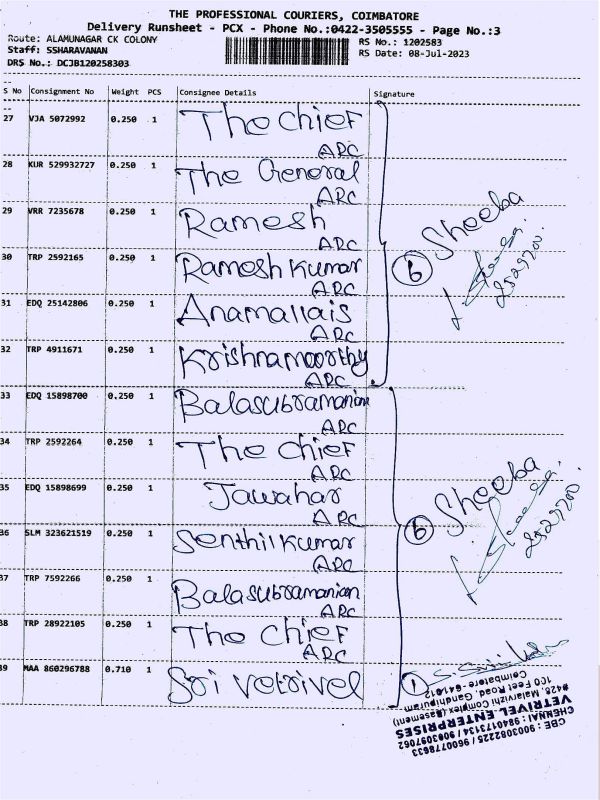 THE PROFESSIONAL COURIERS, COIMBATORE
Delivery Runsheet - PCX - Phone No.:0422-3505555 - Page No.:3
Route: ALAMUNAGAR CK COLONY
RS No.: 1202583
Staff: SSHARAVANAN
RS Date: 08-Jul-2023
DRS No.: DCJB120258303
S No Consignment No Weight PCS Consignee Details Signature
27 VJA 5072992 0.250 1 The Chief
ARC
28 KUR 529932727 0.250 1 The General
ARC
29 VRR 7235678 0.250 1 Ramesh
ARC
30 TRP 2592165 0.250 1 Ramesh Kumar
ARC
31 EDQ 25142806 0.250 1 Anamallais
ARC
32 TRP 4911671 0.250 1 Krishnamoorthy
ARC
6 Sheeba
33 EDQ 15898700 0.250 1 Balasubramanian
ARC
34 TRP 2592264 0.250 1 The Chief
ARC
35 EDQ 15898699 0.250 1 Jawahar
ARC
36 SLM 323621519 0.250 1 Senthil Kumar
ARC
37 TRP 7592266 0.250 1 Balasubramanian
ARC
38 TRP 28922105 0.250 1 The Chief
ARC
6 Sheeba
39 MAA 860296788 0.710 1 Sri Vetrivel
1
CBE : 9003082225 / 9600778633
CHENNAI : 9840173134 / 9003097062
VETRIVEL ENTERPRISES
#428, Malarvizhi Complex (Basement)
100 Feet Road, Gandhipuram
Coimbatore - 641012